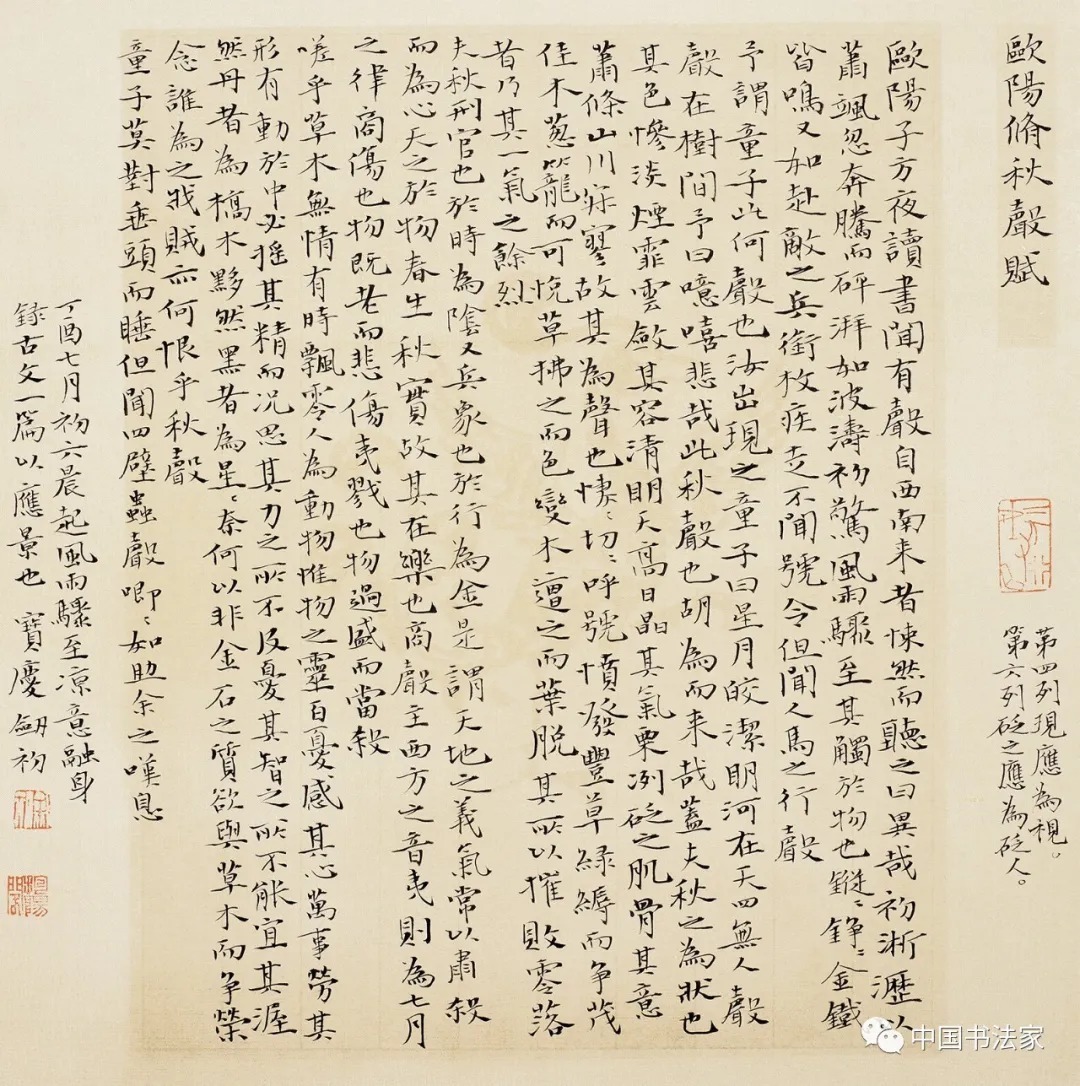 歐陽脩秋聲賦
第四列現應為視。
第六列砭之應為砭人。
歐陽子方夜讀書聞有聲自西南来者悚然而聽之曰異哉初淅瀝以
蕭颯忽奔騰而砰湃如波濤初驚風雨驟至其觸於物也鏦〻錚〻金鐵
皆鳴又如赴敵之兵銜枚疾走不聞號令但聞人馬之行聲
予謂童子此何聲也汝出現之童子曰星月皎潔明河在天四無人聲
聲在樹間予曰噫嘻悲哉此秋聲也胡為而来哉蓋夫秋之為狀也
其色慘淡煙霏雲斂其容清明天高日晶其氣栗冽砭之肌骨其意
蕭條山川寂寥故其為聲也悽〻切〻呼號憤發豐草綠縟而争茂
佳木葱籠而可悅草拂之而色變木遭之而葉脫其所以摧敗零落
者乃其一氣之餘烈
夫秋刑官也於時為陰又兵象也於行為金是謂天地之義氣常以肅殺
而為心天之於物春生秋實故其在樂也商聲主西方之音夷則為七月
之律商傷也物既老而悲傷夷戮也物過盛而當殺
嗟乎草木無情有時飄零人為動物惟物之靈百憂感其心萬事勞其
形有動於中必摇其精而况思其力之所不及憂其智之所不能宜其渥
然丹者為槁木黟然黑者為星〻奈何以非金石之質欲與草木而争榮
念誰為之戕賊亦何恨乎秋聲
童子莫對垂頭而睡但聞四壁蟲聲唧〻如助余之嘆息
丁酉七月初六晨起風雨驟至涼意融身
錄古文一篇以應景也 寶慶 劒初
中国书法家